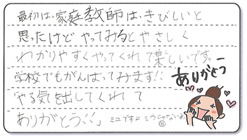 最初は、家庭教師は、きびしいと
思ったけど やってみるとやさしく
わかりやすくやってくれて楽しいです。
学校でもがんばってみます!!
やる気を出してくれて
ありがとう!!
ありがとう